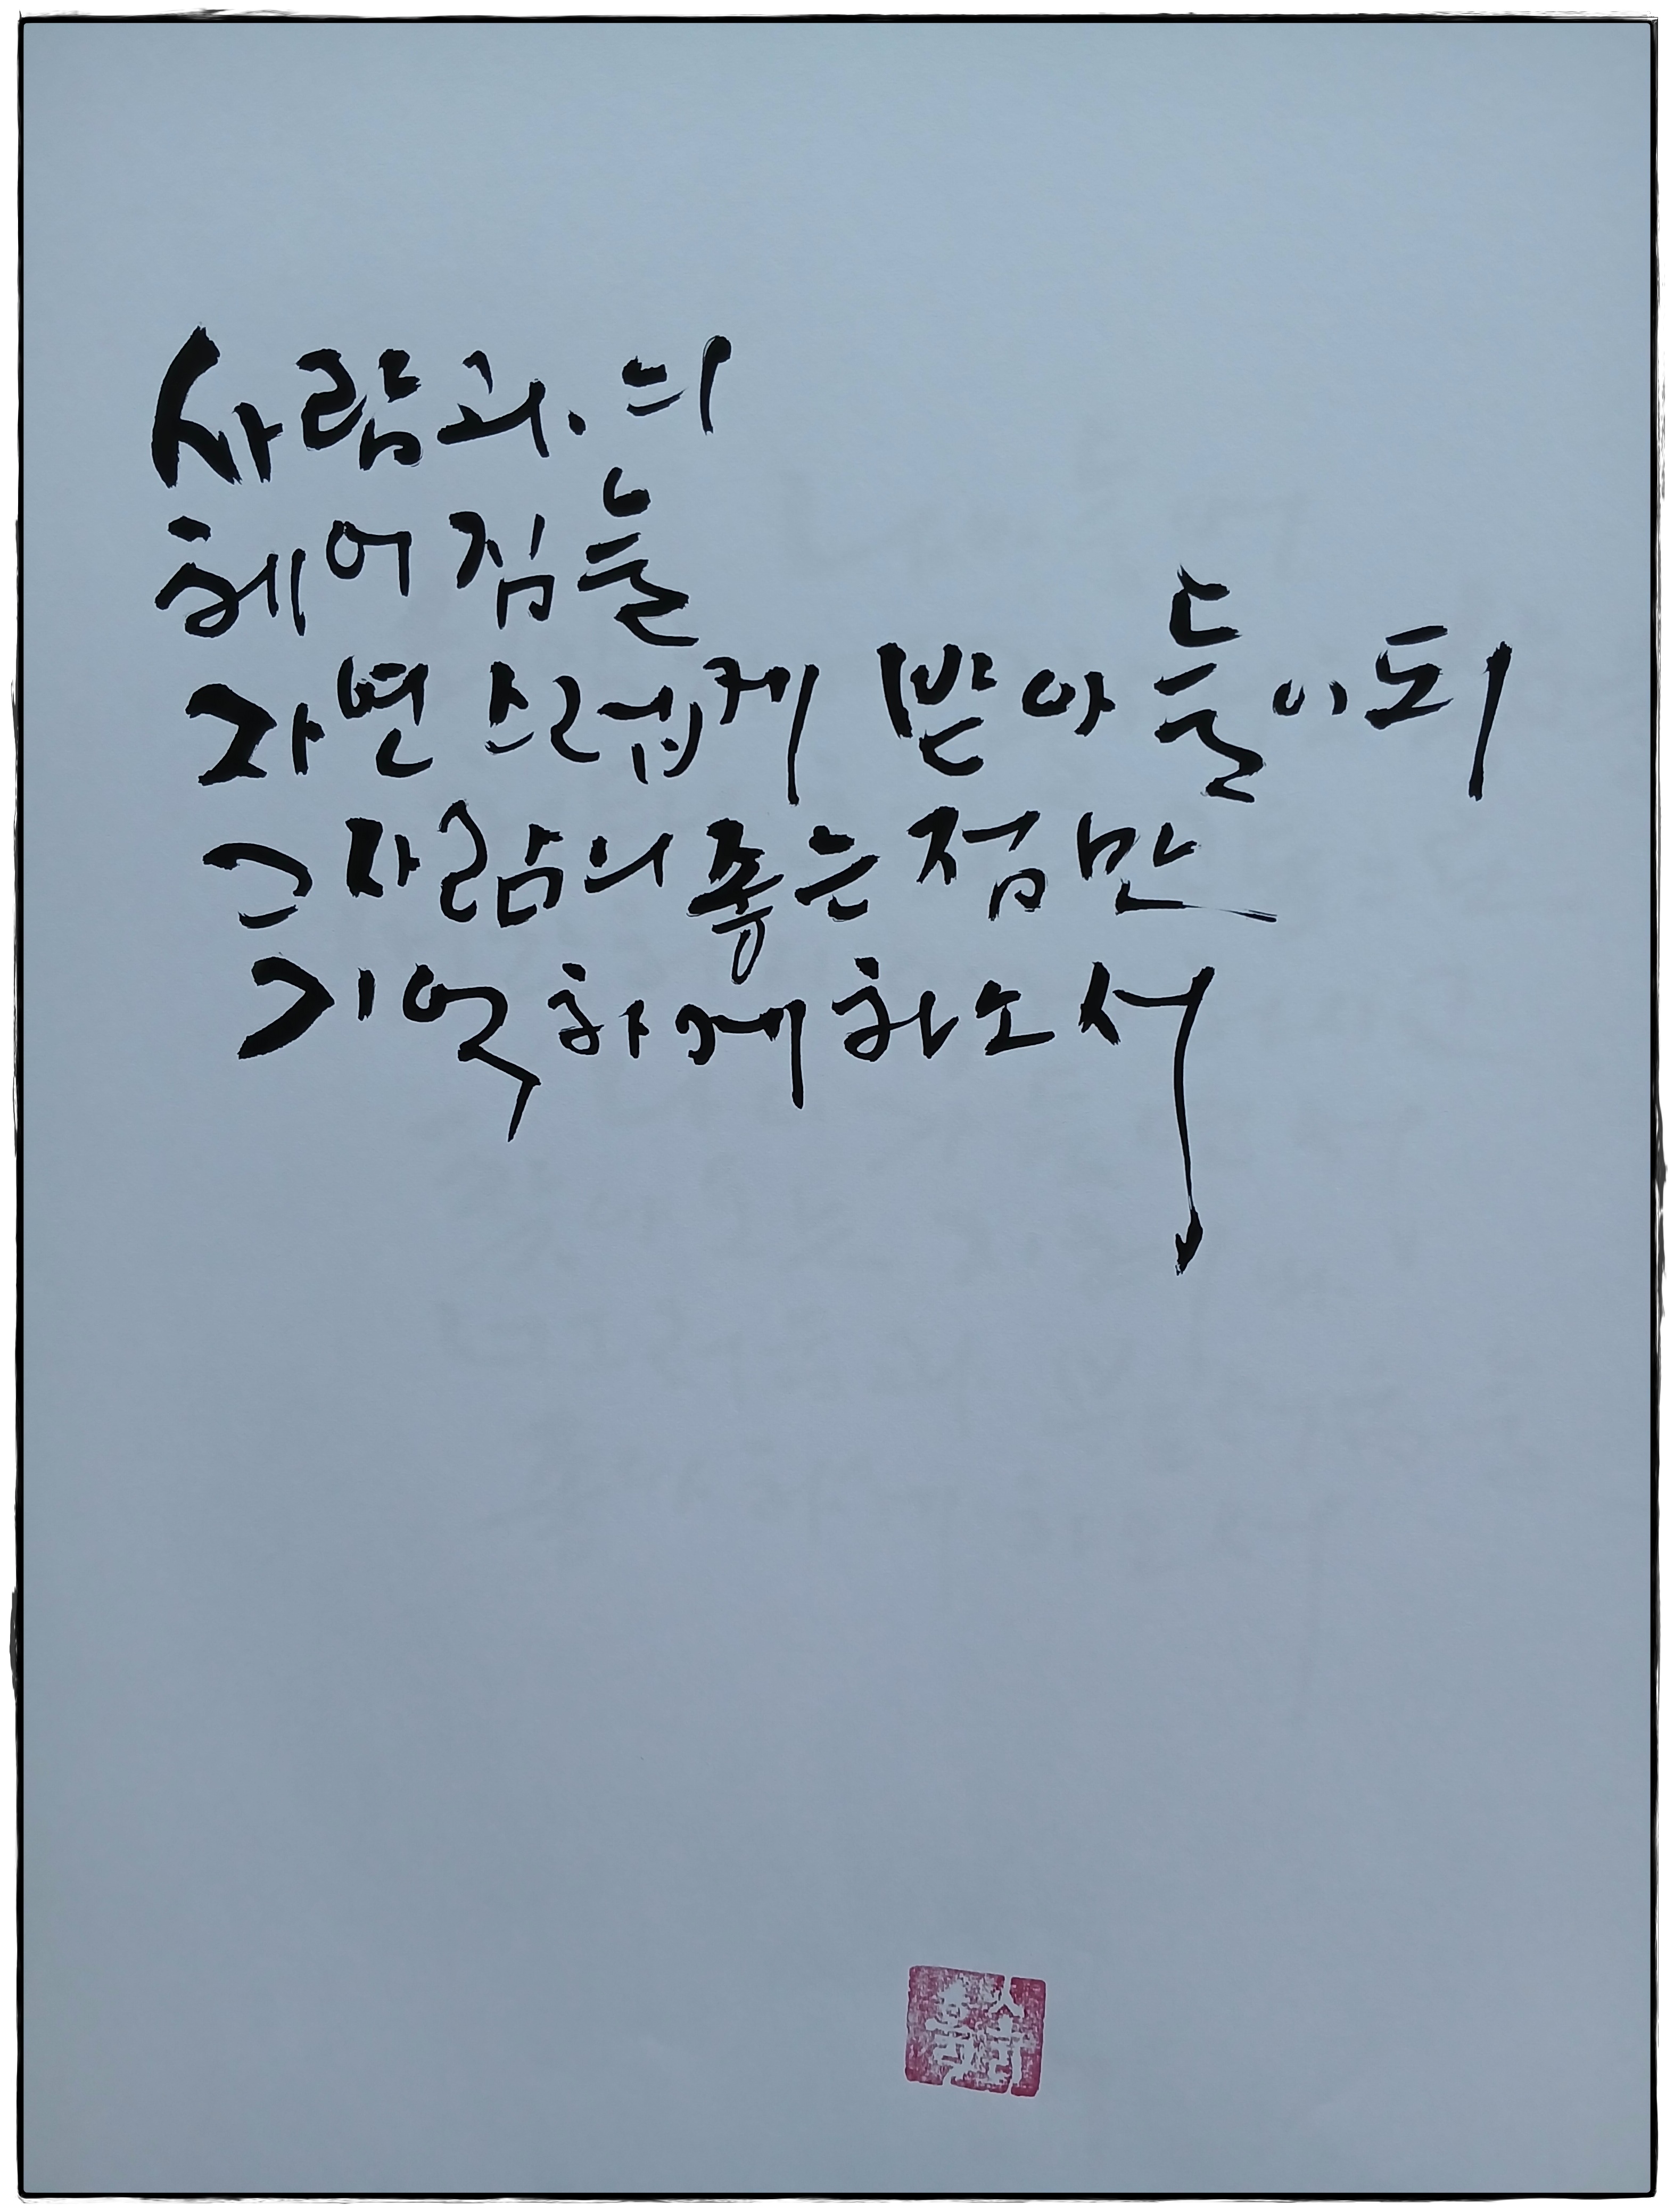 사람과의
헤어짐을
자연스럽게 받아들이되
그 사람의 좋은 점만
기억하게 하소서